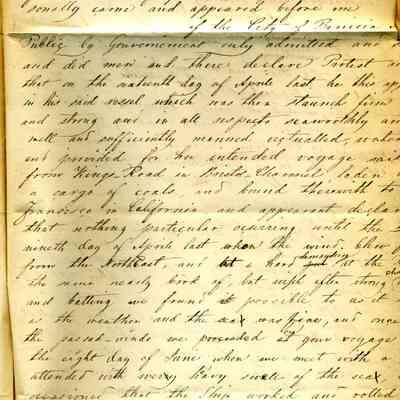 sonally came and appeared before me
of the City of Benicia
Public by Government duly admitted and
and did men and there declare Protest
that on the sixteenth day of Aprile last he this app
in his said vessel which was then staunch firm
and strong and in all respects seaworthy an
well and sufficiently manned victualled, water
and provided for her intended voyage sail
from Kings Road in Bristol Channel, laden
a cargo of coals and bound therewith to
Francisco in California and appearent declar
that nothing particular occuring untill the
nineth day of Aprile last when the wind blew
from the NorthEast, and a hard at the
the same nearly but with after strong
and batting we found it possible to as it
is the weather and the sea was fine, and once
the passed winds we proceeded on your voyage
the eight day of June when we meet with a
attended with wery heavy swell of the sea
occasioned that the Ship worked and rolled